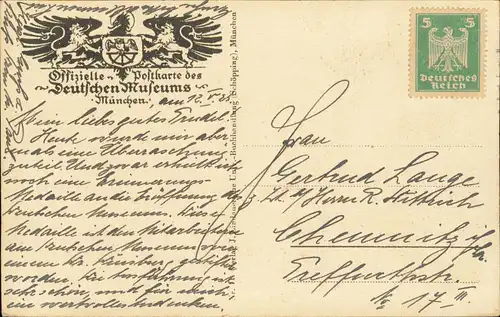 Offizielle Postkarte des
Deutschen Museums
München.
am 12. V. 25.
Mein liebes gutes Trudel!
Heute wurde mir aber-
mals eine Überraschung
zuteil. Und zwar erhielt ich
noch eine Erinnerungs-
Medaille an die Eröffnung des
Deutschen Museums. Diese
Medaille ist den Mitarbeitern
am Deutschen Museum von
einem Nürnberg, gestiftet
worden. Die Ausführung ist
sehr schön, und für mich
ein wertvolles Andenken.
Verlag J. Lindauersche Univ.-Buchhandlung (Schöpping), München
5 5
Deutsches
Reich
Frau
Gertrud Lange
Herrn R.
Chemnitz i/Sa.
Treffurthstr.
No 17 III